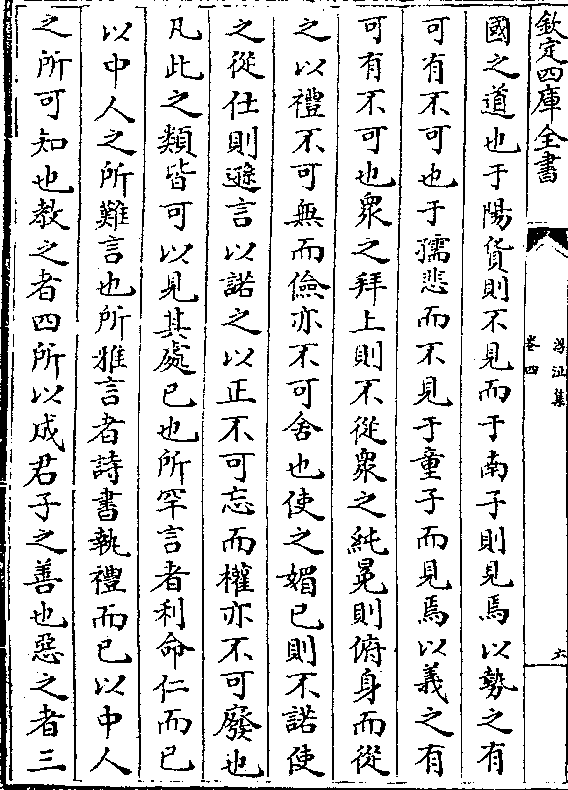 欽定四庫全書
浮沚集
卷四
六
國之道也于陽貨則不見而于南子則見焉以勢之有
可有不可也于孺悲而不見于童子而見焉以義之有
可有不可也衆之拜上則不從衆之純冕則俯身而從
之以禮不可無而儉亦不可舍也使之媚已則不諾使
之從仕則遜言以諾之以正不可忘而權亦不可廢也
凡此之類皆可以見其處已也所罕言者利命仁而已
以中人之所難言也所雅言者詩書執禮而已以中人
之所可知也教之者四所以成君子之善也惡之者三